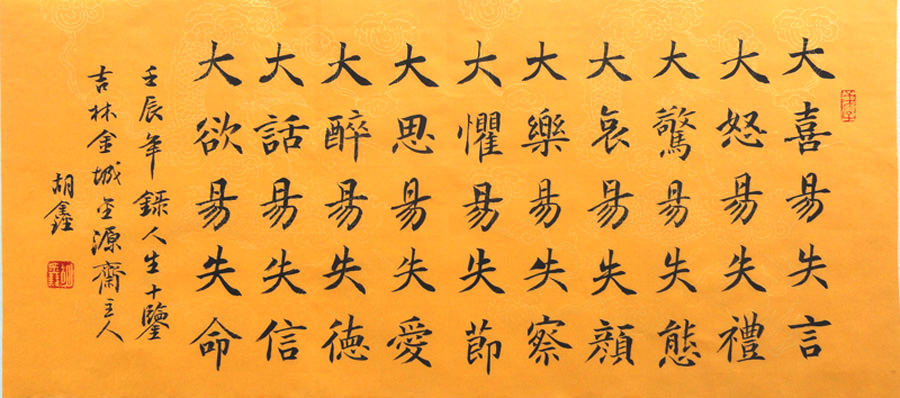 大喜易失言
大怒易失禮
大驚易失態
大哀易失顏
大樂易失察
大懼易失節
大思易失愛
大醉易失德
大話易失信
大欲易失命
壬辰年錄人生十鑒
吉林金城金源齋主人
胡鑫